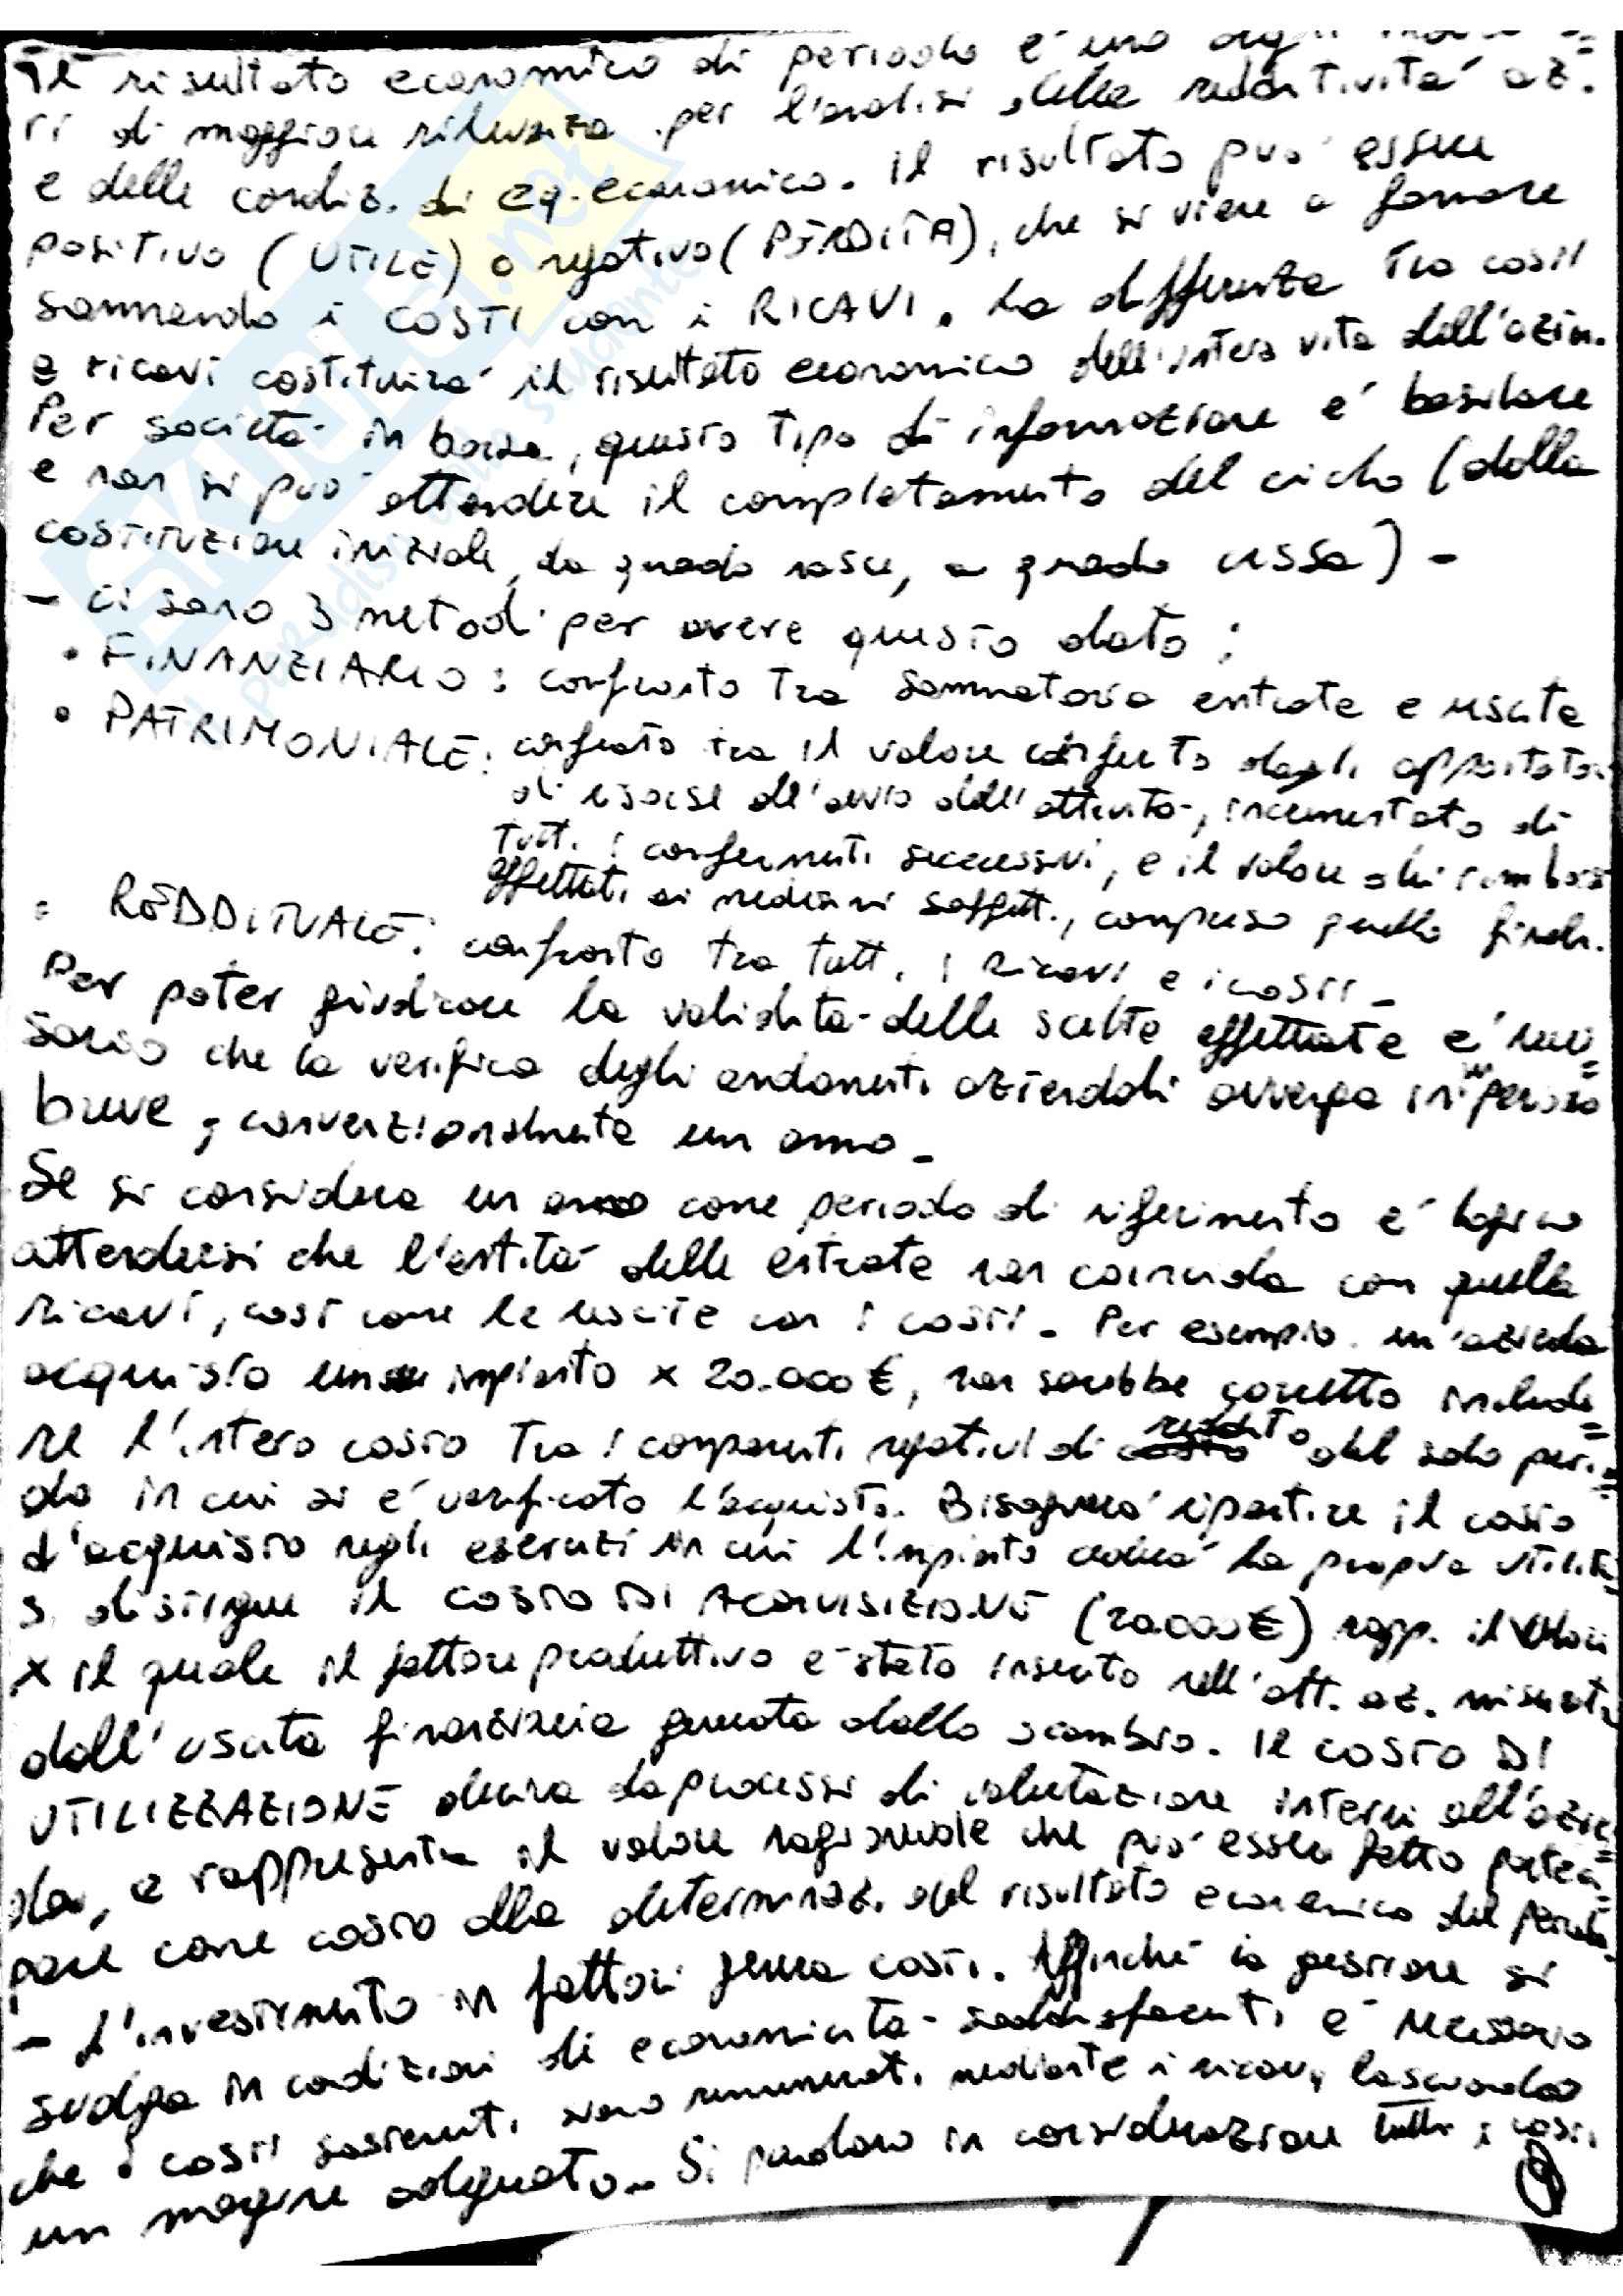 Il risultato economico di periodo e' uno degli
ri di maggiore rilevanza per l'analisi della redditivita' az.
e delle condiz. di eq. economico. Il risultato puo' essere
positivo (UTILE) o negativo (PERDITA), che si viene a formare
sommando i COSTI con i RICAVI. La differenza tra costi
e ricavi costituira' il risultato economico dell'intera vita dell'azien.
Per societa' in borsa, questo tipo di informazione e' basilare
e non si puo' attendere il completamento del ciclo (dalla
costituzione iniziale, da quando nasce, a quando cessa) -
- ci sono 3 metodi per avere questo dato:
• FINANZIARIO: confronto tra sommatoria entrate e uscite
• PATRIMONIALE: confronto tra il valore conferito dagli apportatori
di risorse all'avvio dell'attivita', incrementato di
tutti i conferimenti successivi, e il valore dei rimborsi
effettuati ai medesimi soggett., compreso quello finale.
• REDDITUALE: confronto tra tutti i ricavi e i costi -
Per poter giudicare la validita' delle scelte effettuate e' neces=
sario che la verifica degli andamenti aziendali avvenga in periodo
breve, convenzionalmente un anno -
Se si considera un anno come periodo di riferimento e' logico
attendersi che l'entita' delle entrate non coincida con quella
ricavi, cosi come le uscite con i costi. Per esempio un'azienda
acquista un impianto x 20.000 €, non sarebbe corretto include=
re l'intero costo tra i componenti negativi di reddito del solo perio=
do in cui si e' verificato l'acquisto. Bisognera' ripartire il costo
d'acquisto negli esercizi in cui l'impianto cedera' la propria utilita'
Si distingue il COSTO DI ACQUISIZIONE (20.000 €) rapp. il valore
x il quale il fattore produttivo e' stato inserito nell'att. az. misurato
dall'uscita finanziaria generata dallo scambio. Il COSTO DI
UTILIZZAZIONE deriva da processi di valutazione interni all'azien=
da, e rappresenta il valore ragionevole che puo' essere fatto parteci=
pare come costo alla determinaz. del risultato economico del periodo.
- L'investimento in fattori genera costi. Affinche' la gestione si
svolga in condizioni di economicita' soddisfacenti e' necessario
che i costi sostenuti siano remunerati mediante i ricavi, lasciando
un margine adeguato. Si prendono in considerazione tutti i costi